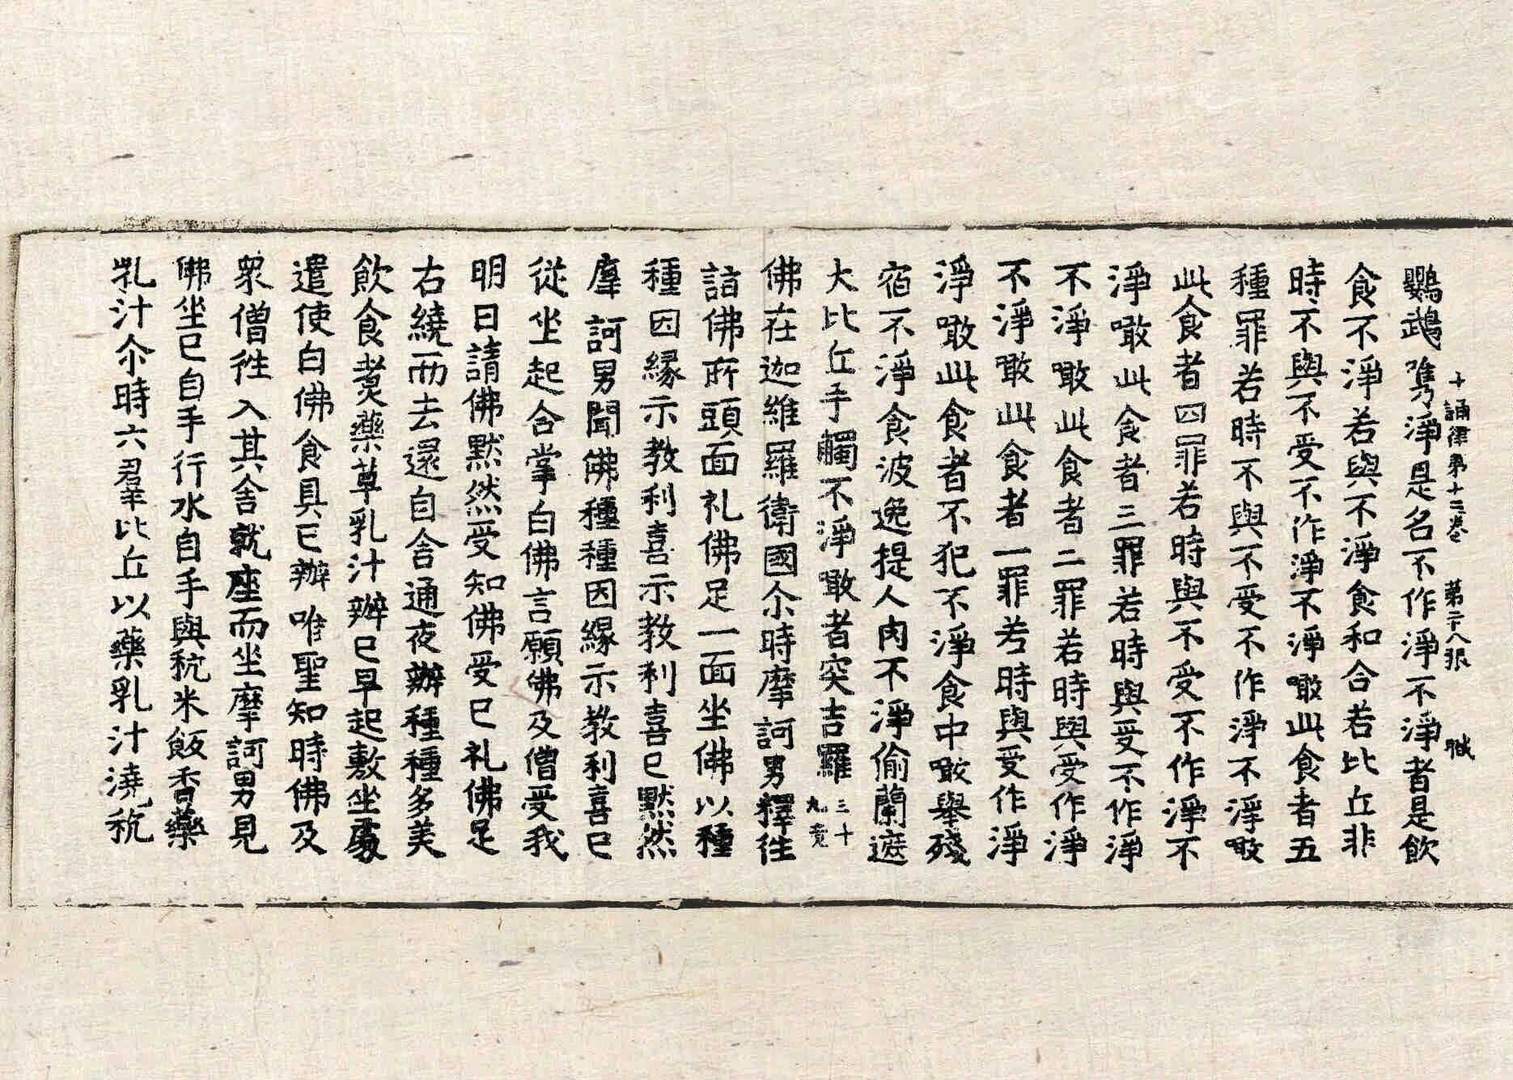 十誦律第十三卷 第二十八張 職
鸚鵡嘴淨是名不作淨不淨者是飲
食不淨若與不淨食和合若比丘非
時不與不受不作淨不淨噉此食者五
種罪若時不與不受不作淨不淨噉
此食者四罪若時與不受不作淨不
淨噉此食者三罪若時與受不作淨
不淨噉此食者二罪若時與受作淨
不淨噉此食者一罪若時與受作淨
淨噉此食者不犯不淨食中噉舉殘
宿不淨食波逸提人肉不淨偷蘭遮
大比丘手觸不淨噉者突吉羅三十九竟
佛在迦維羅衛國尒時摩訶男釋往
詣佛所頭面礼佛足一面坐佛以種
種因緣示教利喜示教利喜已默然
摩訶男聞佛種種因緣示教利喜已
從坐起合掌白佛言願佛及僧受我
明日請佛默然受知佛受已礼佛足
右繞而去還自舍通夜辦種種多美
飲食煑藥草乳汁辦已早起敷坐處
遣使白佛食具已辦唯聖知時佛及
衆僧往入其舍就座而坐摩訶男見
佛坐已自手行水自手與秔米飯香藥
乳汁尒時六羣比丘以藥乳汁澆秔